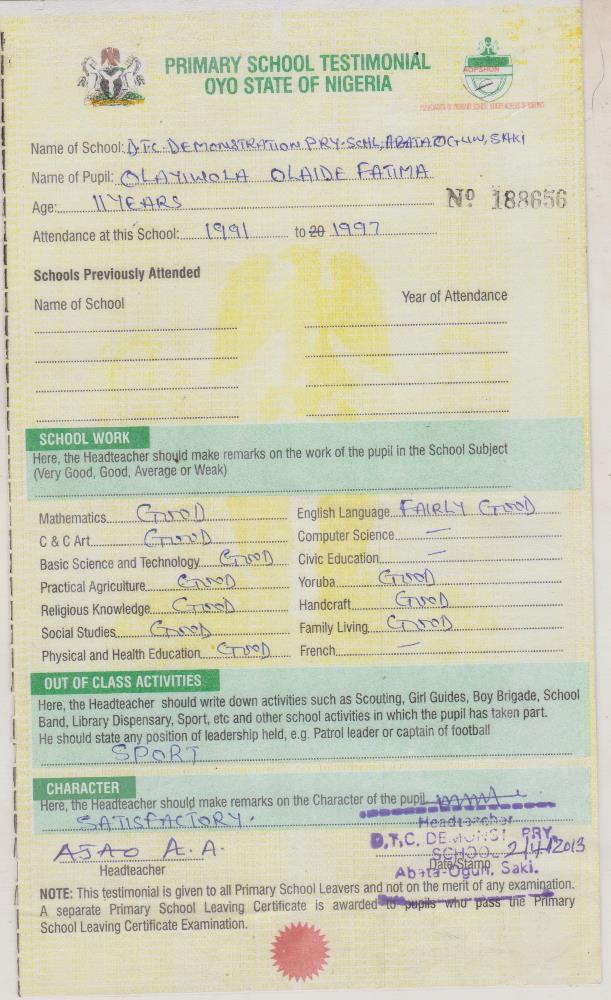 PRIMARY SCHOOL TESTIMONIAL
OYO STATE OF NIGERIA
AOPSHON
Name of School: D.T.C. DEMONSTRATION PRY-SCHL, ABATA OGUN, SAKI
Name of Pupil: OLAYIWOLA OLAIDE FATIMA
Age: 11 YEARS
Nº 188656
Attendance at this School: 1991 to 20 1997
Schools Previously Attended
Name of School Year of Attendance
SCHOOL WORK
Here, the Headteacher should make remarks on the work of the pupil in the School Subject
(Very Good, Good, Average or Weak)
Mathematics GOOD English Language FAIRLY GOOD
C & C Art GOOD Computer Science —
Basic Science and Technology GOOD Civic Education —
Practical Agriculture GOOD Yoruba GOOD
Religious Knowledge GOOD Handcraft GOOD
Social Studies GOOD Family Living GOOD
Physical and Health Education GOOD French —
OUT OF CLASS ACTIVITIES
Here, the Headteacher should write down activities such as Scouting, Girl Guides, Boy Brigade, School
Band, Library Dispensary, Sport, etc and other school activities in which the pupil has taken part.
He should state any position of leadership held, e.g. Patrol leader or captain of football
SPORT
CHARACTER
Here, the Headteacher should make remarks on the Character of the pupil
SATISFACTORY.
Headteacher
AJAO A. A. D.T.C. DEMONST PRY.
SCHOOL 2/4/2013
Headteacher Date/Stamp
Abata-Ogun, Saki.
NOTE: This testimonial is given to all Primary School Leavers and not on the merit of any examination.
A separate Primary School Leaving Certificate is awarded to pupils who pass the Primary
School Leaving Certificate Examination.